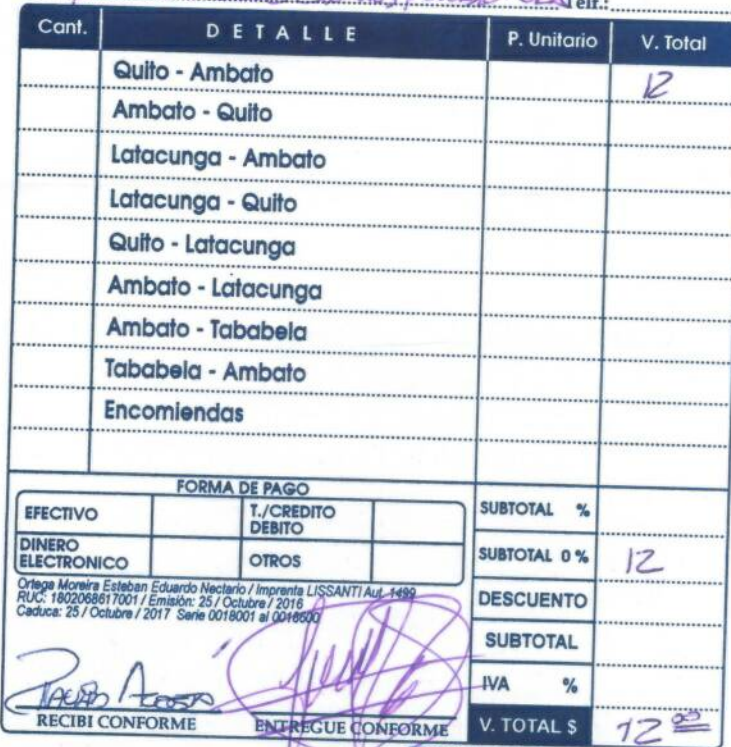 Telf.:
Cant. DETALLE P. Unitario V. Total
Quito - Ambato 12
Ambato - Quito
Latacunga - Ambato
Latacunga - Quito
Quito - Latacunga
Ambato - Latacunga
Ambato - Tababela
Tababela - Ambato
Encomiendas
FORMA DE PAGO
EFECTIVO T./CREDITO DEBITO
DINERO ELECTRONICO OTROS
SUBTOTAL %
SUBTOTAL 0 % 12
DESCUENTO
SUBTOTAL
IVA %
V. TOTAL $ 12 00
Ortega Moreira Esteban Eduardo Nectario / Imprenta LISSANTI Aut. 1499
RUC: 1802068617001 / Emisión: 25 / Octubre / 2016
Caduca: 25 / Octubre / 2017 Serie 0018001 al 0018500
RECIBI CONFORME ENTREGUE CONFORME